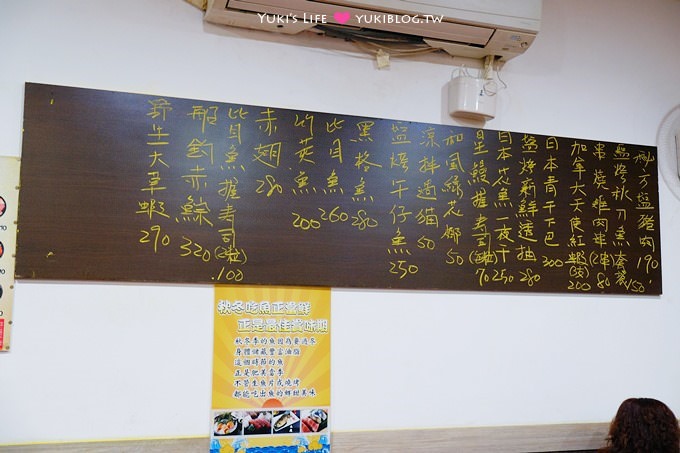 YUKI'S LIFE ♥ YUKIBLOG.TW
鹽豬肉 190
鹽烤秋刀魚 150
串燒雞肉串(2串) 80
加拿大天使紅蝦(3支) 200
日本青干下巴 300
鹽烤新鮮透抽 280
日本花魚一夜干 250
星鰻握壽司(2粒) 70
和風綠花椰 50
涼拌過貓 50
鹽烤午仔魚 250
黑格魚 280
比目魚 260
竹莢魚 200
赤翅 280
比目魚握壽司(2粒) 100
船釣赤鯮 320
野生大草蝦 290
秋冬吃魚正當鮮
正是最佳賞味期
秋冬季的魚因為要過冬
身體儲藏豐富油脂
這個時節的魚
正是肥美當季
不管生魚片或燒烤
都能吃出魚的鮮甜美味